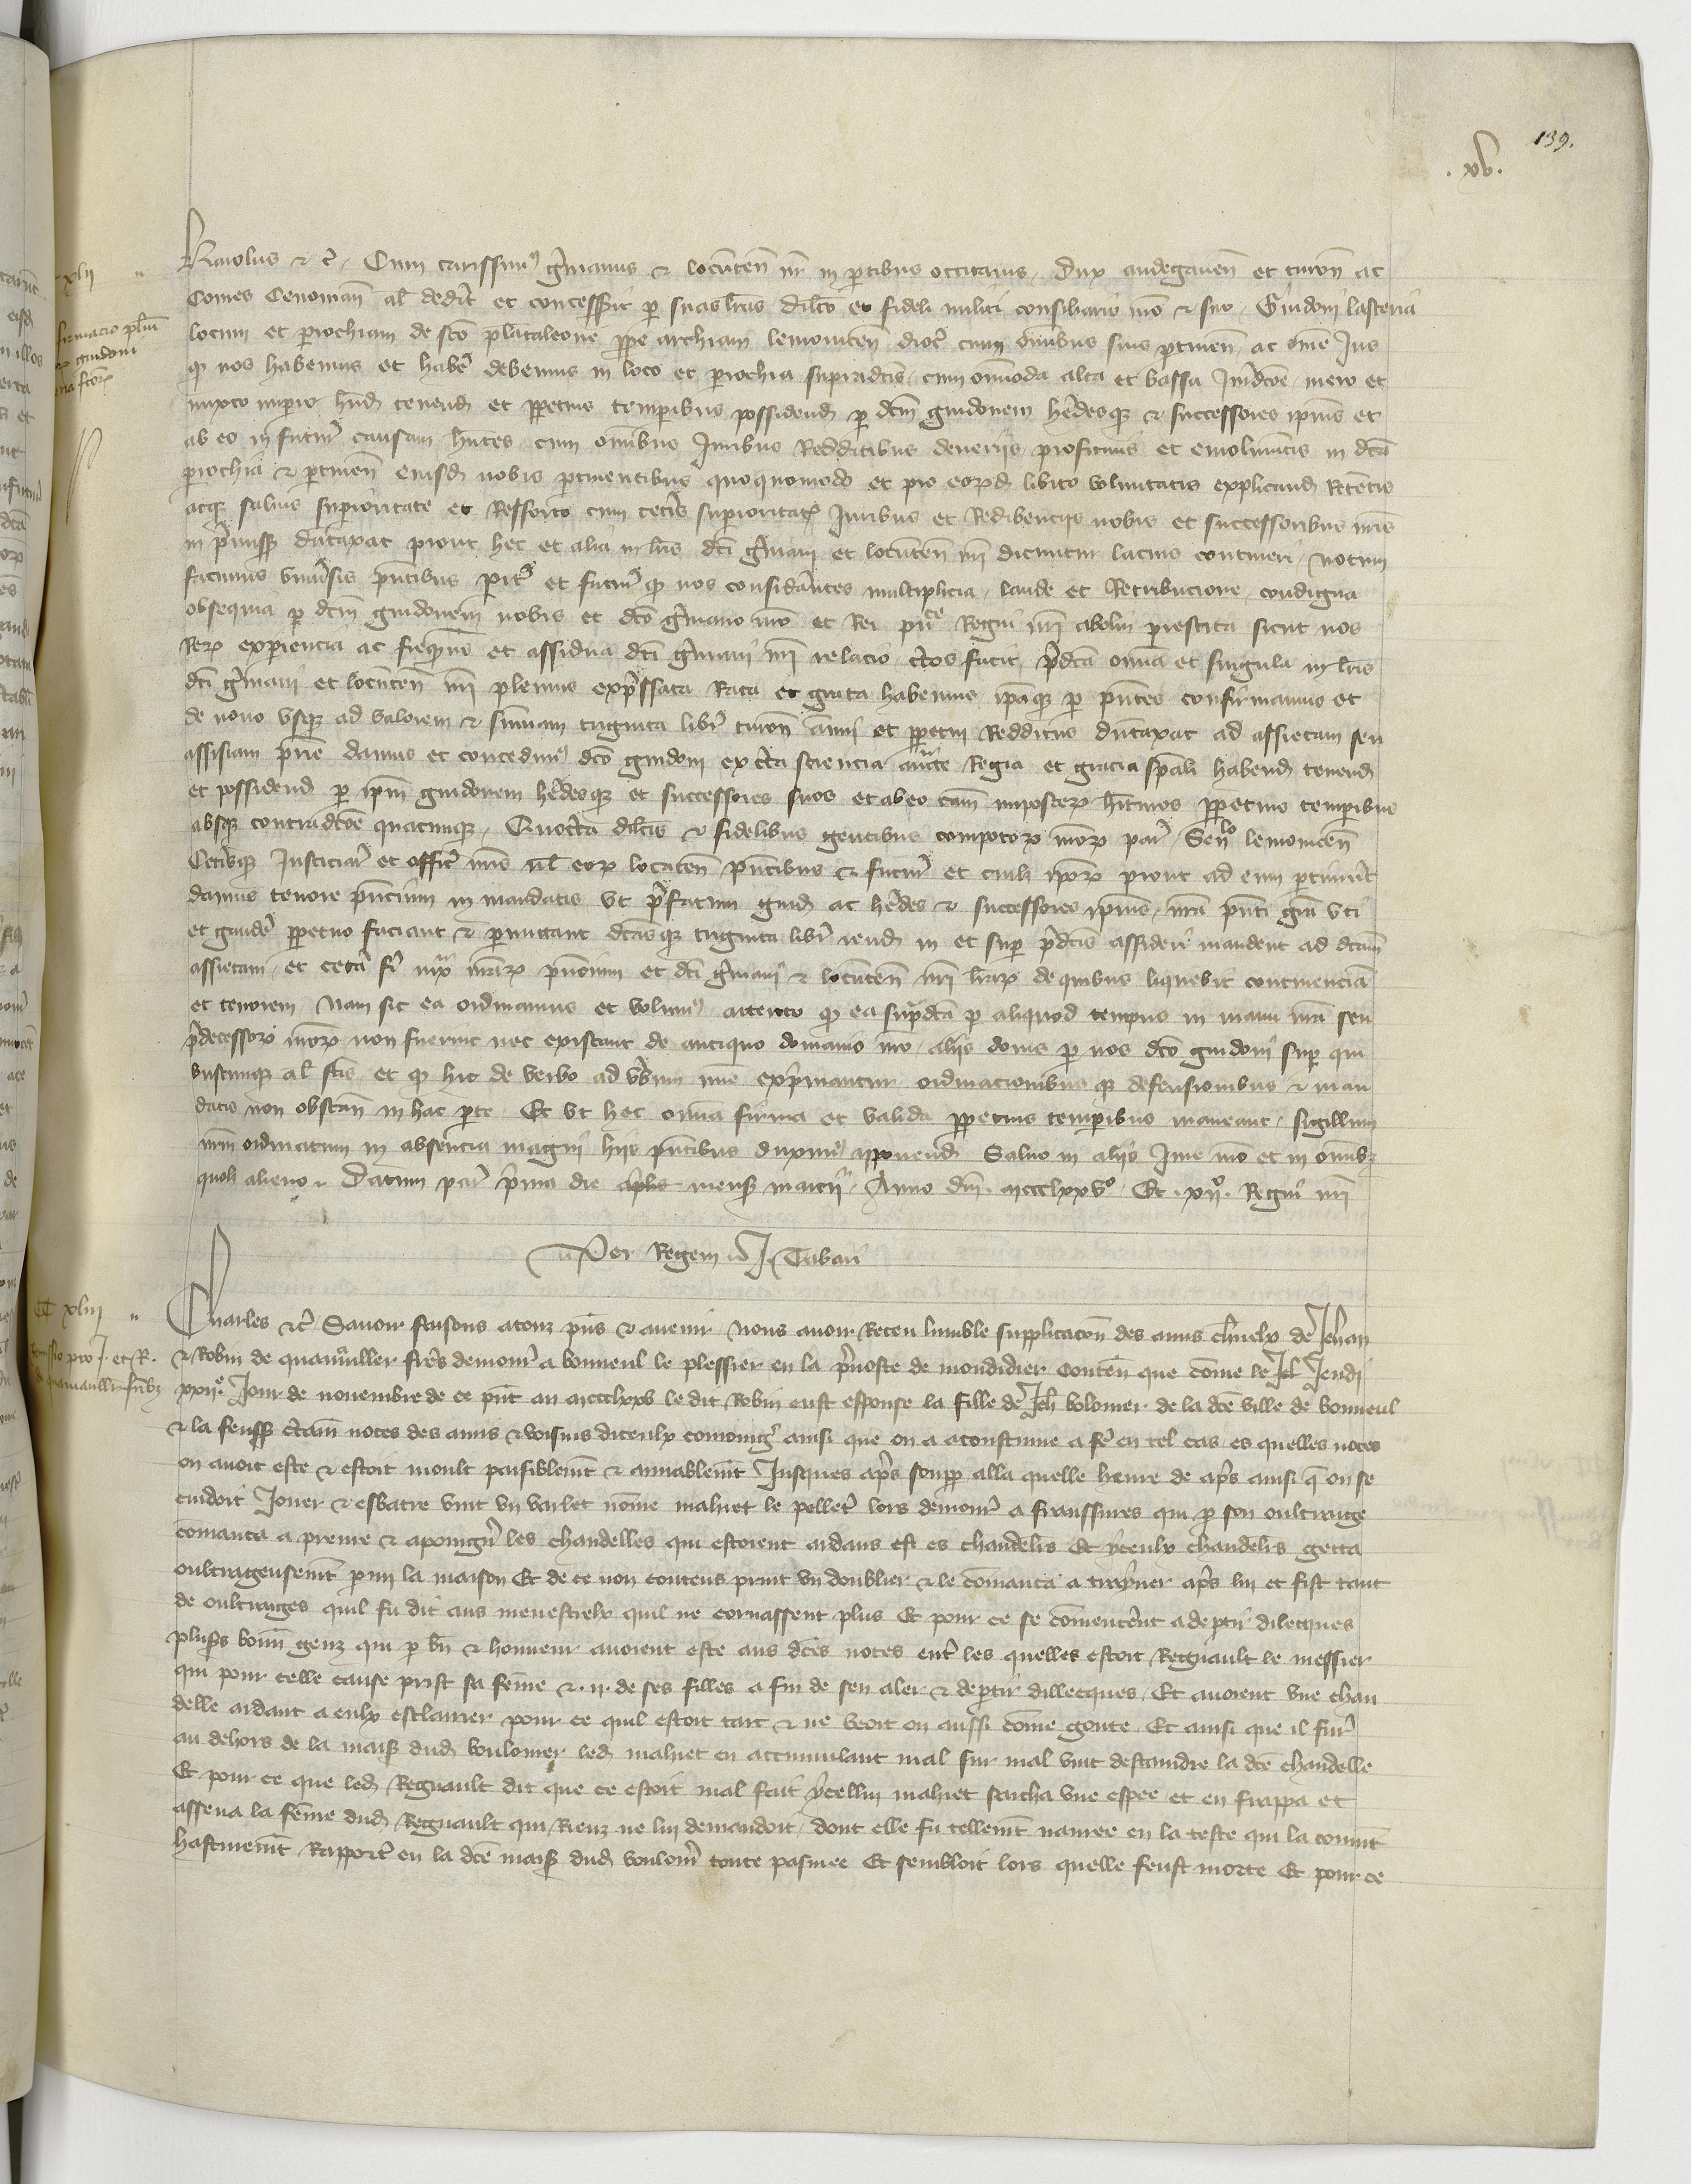 139.
.xv.
Karolus et c̃. Cum carissimus g̃manus et locũteñ nr̃ in partibus occitanis, Dux andegaveñ et turoñ ac
Comes Cenomañ al̃ dedit et concessit per suas lr̃as dilc̃o et fideli militi consiliario nr̃o et suo, Guidoni lasteria
locum et parrochiam de sc̃o
qd nos habemus et habere debemus in loco et parrochia supradictis, cum omnimoda alta et bassa Jurisdc̃oe, mero et
mixto imperio hñd tenend et perpetuis temporibus possidend per dc̃m guidonem heredesque et successores ipsius et
ab eo in futur̃ causam hñtes, cum omnibus Juribus Redditibus deveriis proficuis et emolumentis in dc̃a
parrochia et pertineñ eiusd nobis pertinentibus quoquomodo et pro eorumd libito voluntatis explicand Retentis
atque salvis superioritate et Ressorto cum ceteris superioritatis Juribus et Redibenciis nobis et successoribus nr̃is
in premissis dũtaxat prout hec et alia in lr̃is dc̃i g̃mani et locũteñ nr̃i dicuntur lacius contineri, Notum
facimus universis pñtibus pariter et futur̃ qd nos considerantes multiplicia, laude et Retribucione, condigna
obsequia per dc̃m guidonem nobis et dc̃o g̃mano nr̃o et Rei puce Regni nr̃i ab olim prestita sicut nos
Rerum experiencia ac frequens et assidua dc̃i g̃mani nr̃i relacio certos facit, p̃dc̃a omnia et singula in lr̃is
dc̃i g̃mani et locũteñ nr̃i plenius expressata Rata et grata habemus, ipsaque per pñtes confirmamus et
de novo usque ad valorem et summam triginta libr̃ turoñ annui et perpetui Redditus dũtaxat ad assietam seu
assisiam prie damus et concedimus dc̃o guidoni ex certa sciencia auc̃te Regia et gracia spãli habend tenend
et possidend per ipm̃ guidonem heredesque et successores suos et ab eo cam̃ imposterum hituros perpetuis temporibus
absque contradc̃oe quacunque, Quocirca dilc̃is et fidelibus gentibus compotorum nr̃orum par̃, Senllo lemoviceñ
Ceterisque Justiciar̃ et offic̃ nr̃is vel eorum locateñ pñtibus et futur̃ et cuil̃ ipsorum prout ad eum pertinuerit
damus tenore pñcium in mandatis ut p̃fatum guid ac heredes et successores ipsius, nr̃a pñti gr̃a uti
et gaudere perpetuo faciant et permittant dc̃asque triginta libr̃ rend in et super p̃dc̃is assideri mandent ad dc̃am
assietam, et cetera fi iuxta nr̃arum pñcium et dc̃i g̃mani et locũteñ nr̃i lr̃arum de quibus liquebit continenciã
et tenorem, Nam sic ea ordinamus et volumus, attento qd ea supradc̃a per aliquod tempus in manu nr̃a seu
p̃decessorum nr̃orum non fuerint nec existant de antiquo domanio nr̃o, aliis donis per nos dc̃o guidoni super qui
buscunque al̃ fc̃is, et qd hic de verbo ad verbum mĩe exprimantur ordinacionibusque defensionibus et man
datis non obstañ in hac parte. Et ut hec omnia firma et valida perpetuis temporibus maneant, sigillum
nr̃m ordinatum in absencia magni hiis pñtibus duximus apponend Salvo in aliis Jure nr̃o et in omnibus
quol̃ alieno. Datum par̃ prima die mensis marcii, Anno dñi. mccclxxvº. Et .xiiº. Regni nr̃i
Per Regem J. Tabari
Charles etc̃ Savoir faisons a touz pñs et avenir Nous avoir Receu lumble supplicacoñ des amis charnelx de Jehan
et Robin de frẽs demour̃ a bonneul le plessier en la p̃voste de mondidier Conteñ que cõme le Jeudi
xxiiᵉ. Jour de novembre de ce pñt an mccclxxv le dit Robin eust espouse la fille de Jeh̃ bolomer de la dc̃e ville de bonneul
et la feussẽt noces des amis et voisins diceulx ainsi que on a acoustume a fẽ en tel cas es quelles noces
on avoit este et estoit moult paisiblemẽt et amiablemẽt Jusques ap̃s soupp a la quelle heure de ap̃s ainsi q̃ on se
cuidoit Jouer et esbatre vint un varlet nõme mahiet le pelletr̃ lors demour̃ a franssures qui par son oultrage
cõmanca a prenre et les chandelles qui estoient ardans es chandel̃rs Et yceulx chandel̃rs getta
oultrageusemẽt par mi la maison Et de ce non contens print un doublier et le cõmanca a trayner ap̃s lui et fist tant
de oultrages quil fu dit aus menestrelx quil ne cornassent plus Et pour ce se cõmencerent a departir dilecques
plusrs bonñ genz qui par bñ et honneur avoient este aus dc̃es noces entr̃ les quelles estoit Regnault le messier
qui pour celle cause prist sa feme et .ii. de ses filles a fin de sen aler et departir dillecques. Et avoient une chan
delle ardant a eulx esclairer pour ce quil estoit tart et ne veoit on aussi cõme goute. Et ainsi que il fur̃
au dehors de la mais̃ dud boulomer led mahiet en accumulant mal sur mal vint destaindre la dc̃e chandelle
Et pour ce que led Regnault dit que ce estoit mal fait ycellui mahiet sacha une espee et en frappa et
assena la feme dud Regnault qui Rienz ne lui demandoit, dont elle fu tellemẽt navree en la teste qui la convint
hastivemẽt Rapportr̃ en la dc̃e mais̃ dud boulomr̃ toute pasmee Et sembloit lors quelle feust morte Et pour ce